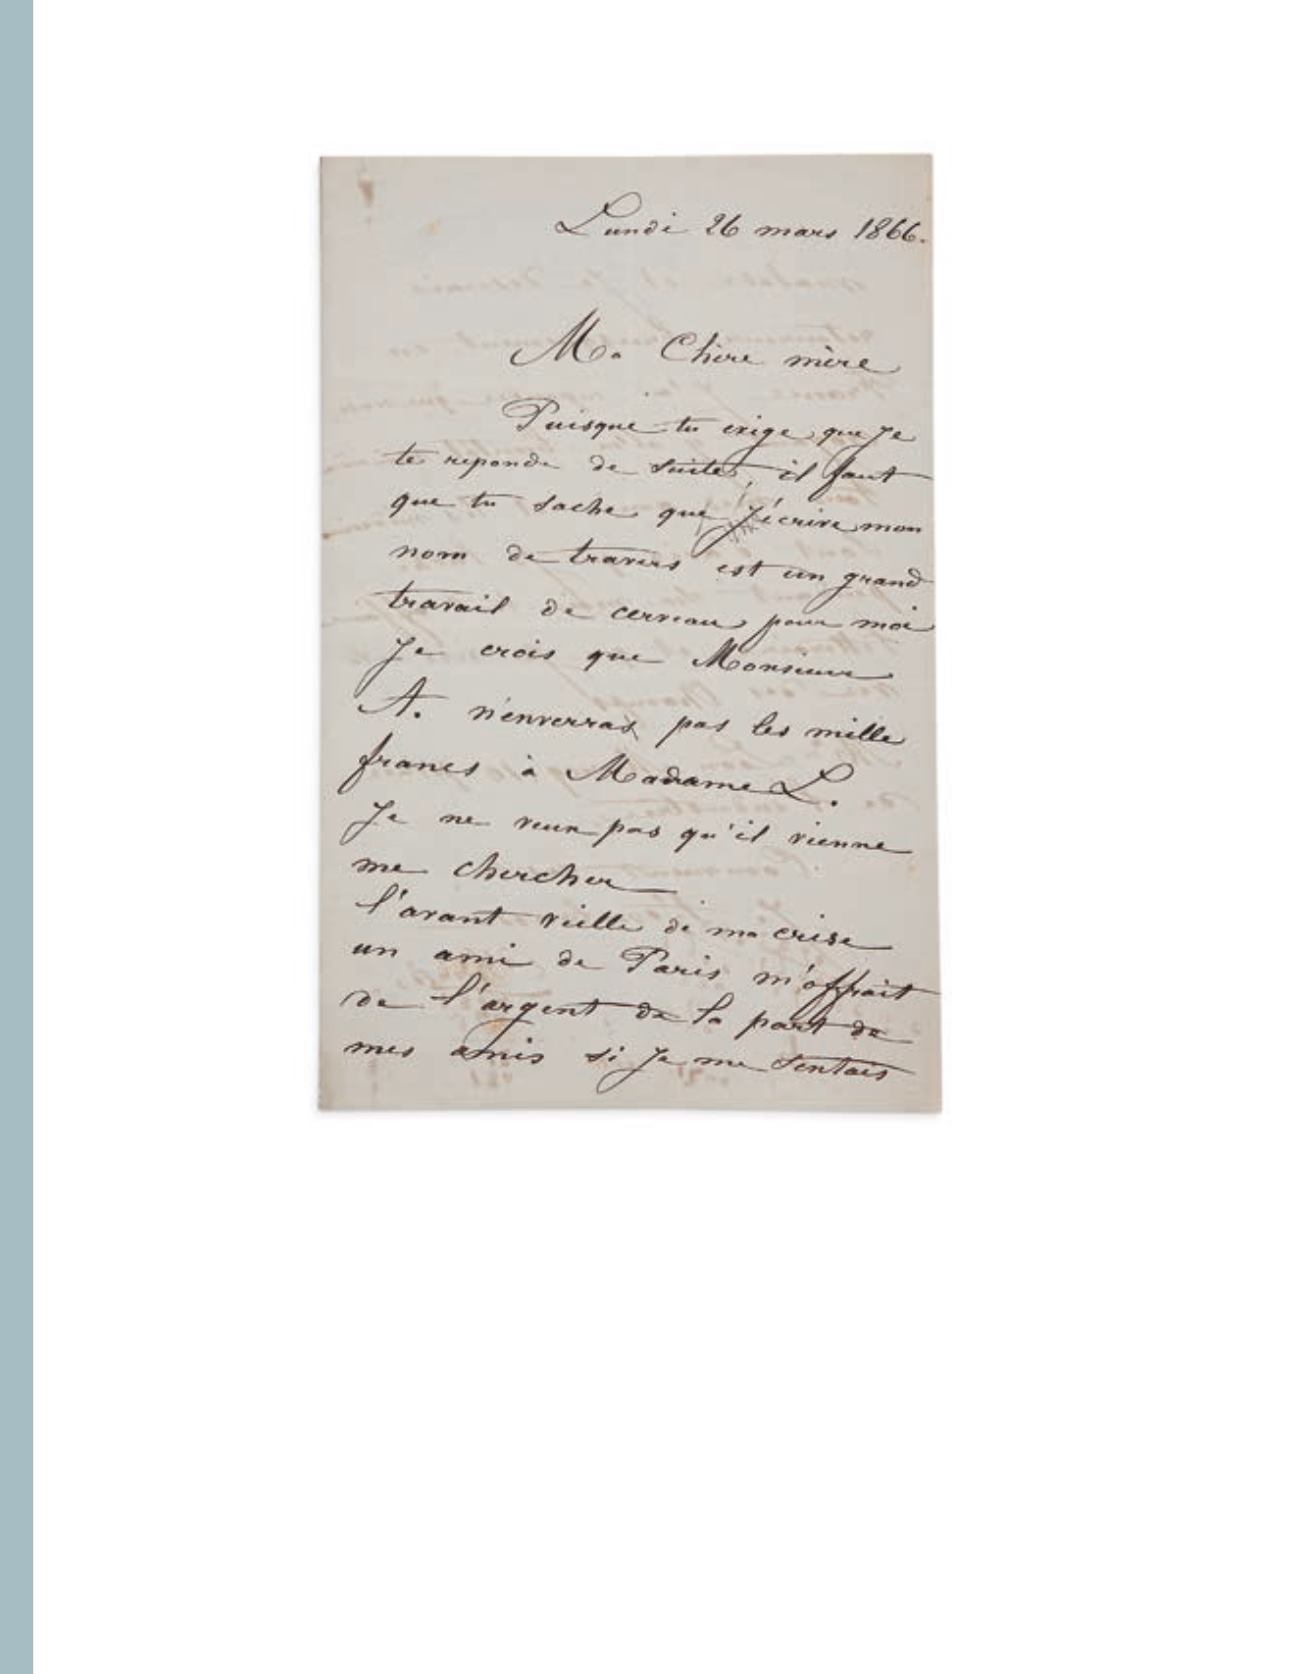 Lundi 26 mars 1866.
Ma Chère mère
Puisque tu exige que je
te reponde de suite, il faut
que tu sache que j'écrire mon
nom de travers est un grand
travail de cerveau pour moi
Je crois que Monsieur
A. n'enverras pas les mille
francs à Madame L.
Je ne veux pas qu'il vienne
me chercher
l'avant veille de ma crise
un ami de Paris m'offrait
de l'argent de la part de
mes amis si je me sentais